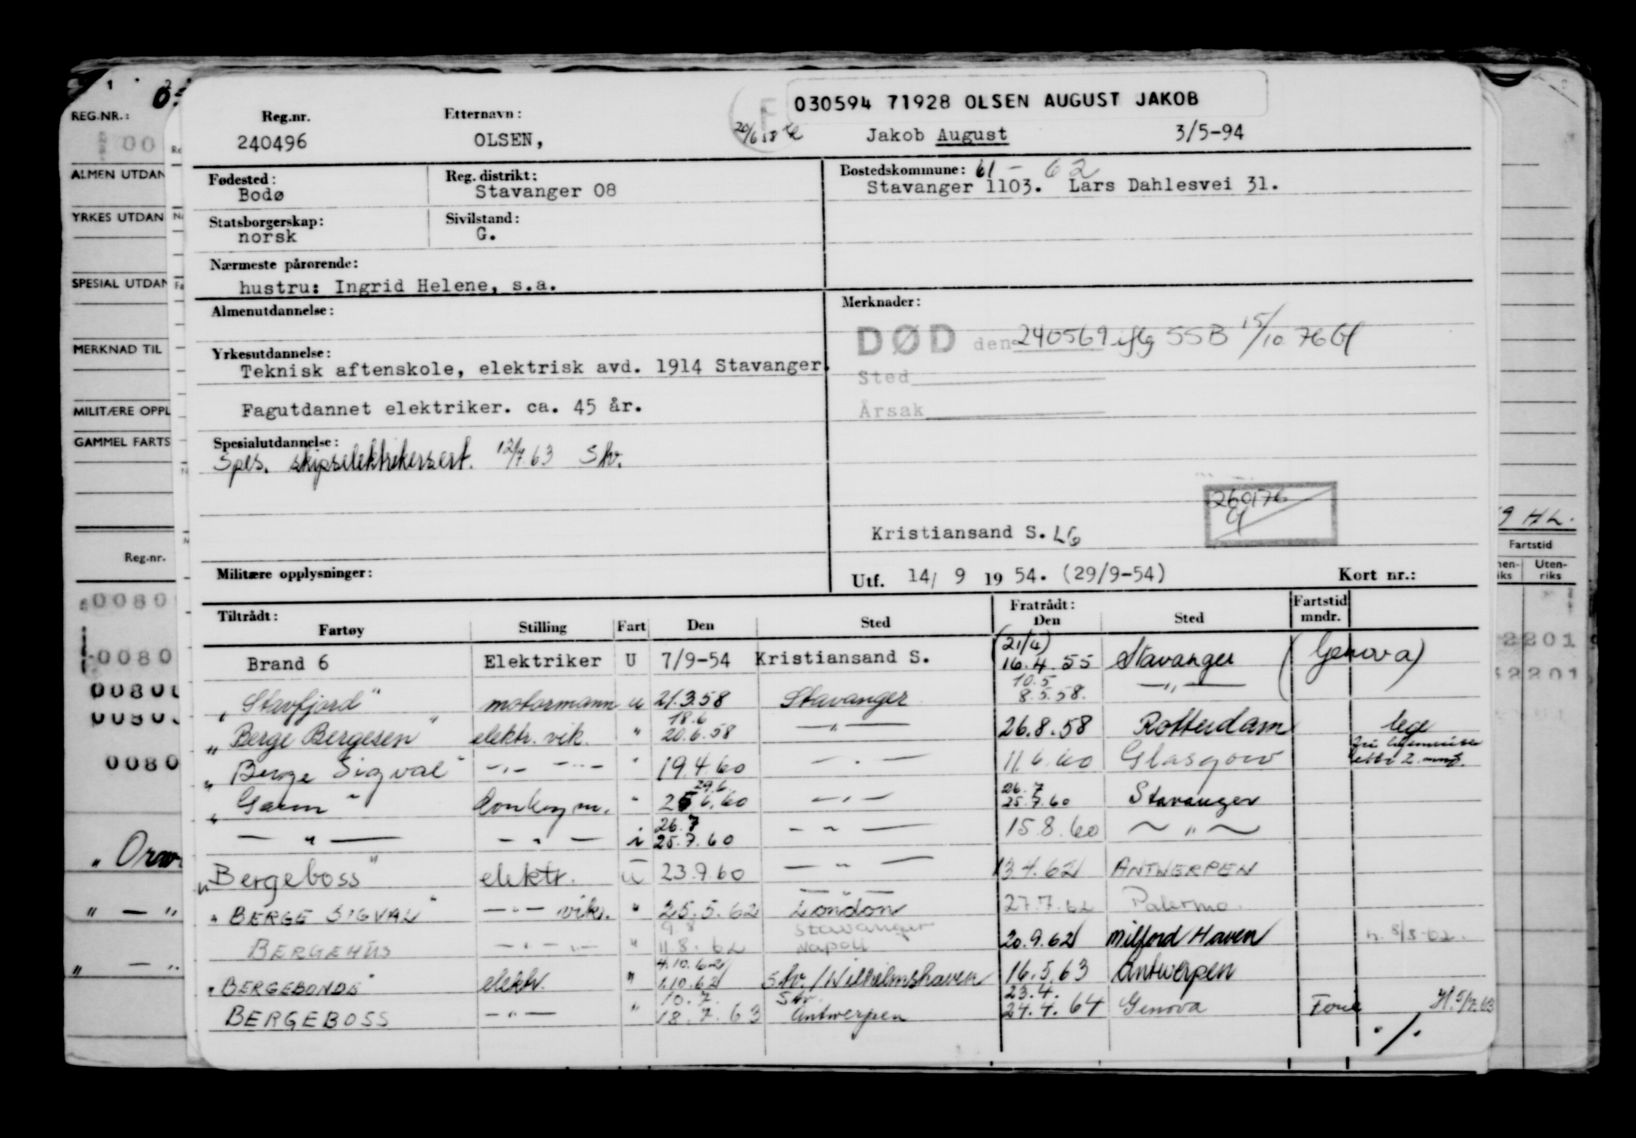 030594 71928 OLSEN AUGUST JAKOB
Reg.nr. Etternavn:
240496 OLSEN, 20/6.58 Jakob August 3/5-94
Fødested: Reg. distrikt: Bostedskommune: 61 - 62
Bodø Stavanger 08 Stavanger 1103. Lars Dahlesvei 31.
Statsborgerskap: Sivilstand:
norsk G.
Nærmeste pårørende:
hustru: Ingrid Helene, s.a.
Almenutdannelse: Merknader:
DØD den 240569 iflg SSB 15/10 76
Yrkesutdannelse:
Teknisk aftenskole, elektrisk avd. 1914 Stavanger.
Sted
Fagutdannet elektriker. ca. 45 år.
Årsak
Spesialutdannelse:
Spes. skipselektrikersert. 12/7.63 Skv.
260176
Kristiansand S. LG
Militære opplysninger: Utf. 14/ 9 19 54. (29/9-54) Kort nr.:
Tiltrådt: Fratrådt: Fartstid
Fartøy Stilling Fart Den Sted Den Sted mndr.
(21/4)
Brand 6 Elektriker U 7/9-54 Kristiansand S. 16.4.55 Stavanger (Genova)
10.5
"Stavfjord" motormann u 21.3.58 Stavanger 8.5.58. — " —
18.6
"Berge Bergesen" elektr. vik. " 20.6.58 — " — 26.8.58 Rotterdam lege
"Berge Sigval" — " — " — " 19.4.60 — " — 11.6.60 Glasgow
29.6 26.7
"Garm" Donkeym. " 25.6.60 — " — 25.7.60 Stavanger
26.7
— " — — " — i 25.7.60 — " — 15.8.60 — " —
"Bergeboss" elektr. u 23.9.60 — " — 13.4.62 ANTWERPEN
"BERGE SIGVAL" — " — vik. " 25.5.62 London 27.7.62 Palermo.
9.8 Stavanger
BERGEHUS — " — " — " 11.8.62 Napoli 20.9.62 Milford Haven h. 8/8-62.
4.10.62
"BERGEBONDE" elektr. " 1.10.62 Skv./Wilhelmshaven 16.5.63 Antwerpen
10.7. Skv. 23.4.
BERGEBOSS — " — " 18.7.63 Antwerpen 24.4.64 Genova
./.
REG.NR.:
00
ALMEN UTDAN
YRKES UTDAN
SPESIAL UTDAN
MERKNAD TIL
MILITÆRE OPPL
GAMMEL FARTS
Reg-nr.
0080
0080
0080
0080
0080
" — "
" — "
9 HL.
Fartstid
Uten-
riks
2201
2201